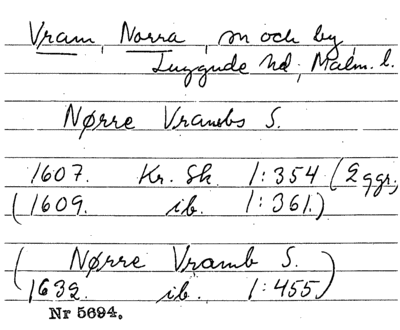 Vram, Norra, sn och by,
Luggude hd; Malm. l.
Nørre Vrambs S.
1607. Kr. Sk. 1:354 (2 ggr,
(1609. ib. 1:361.)
(Nørre Vramb S.
1632. ib. 1:455)
Nr 5694.